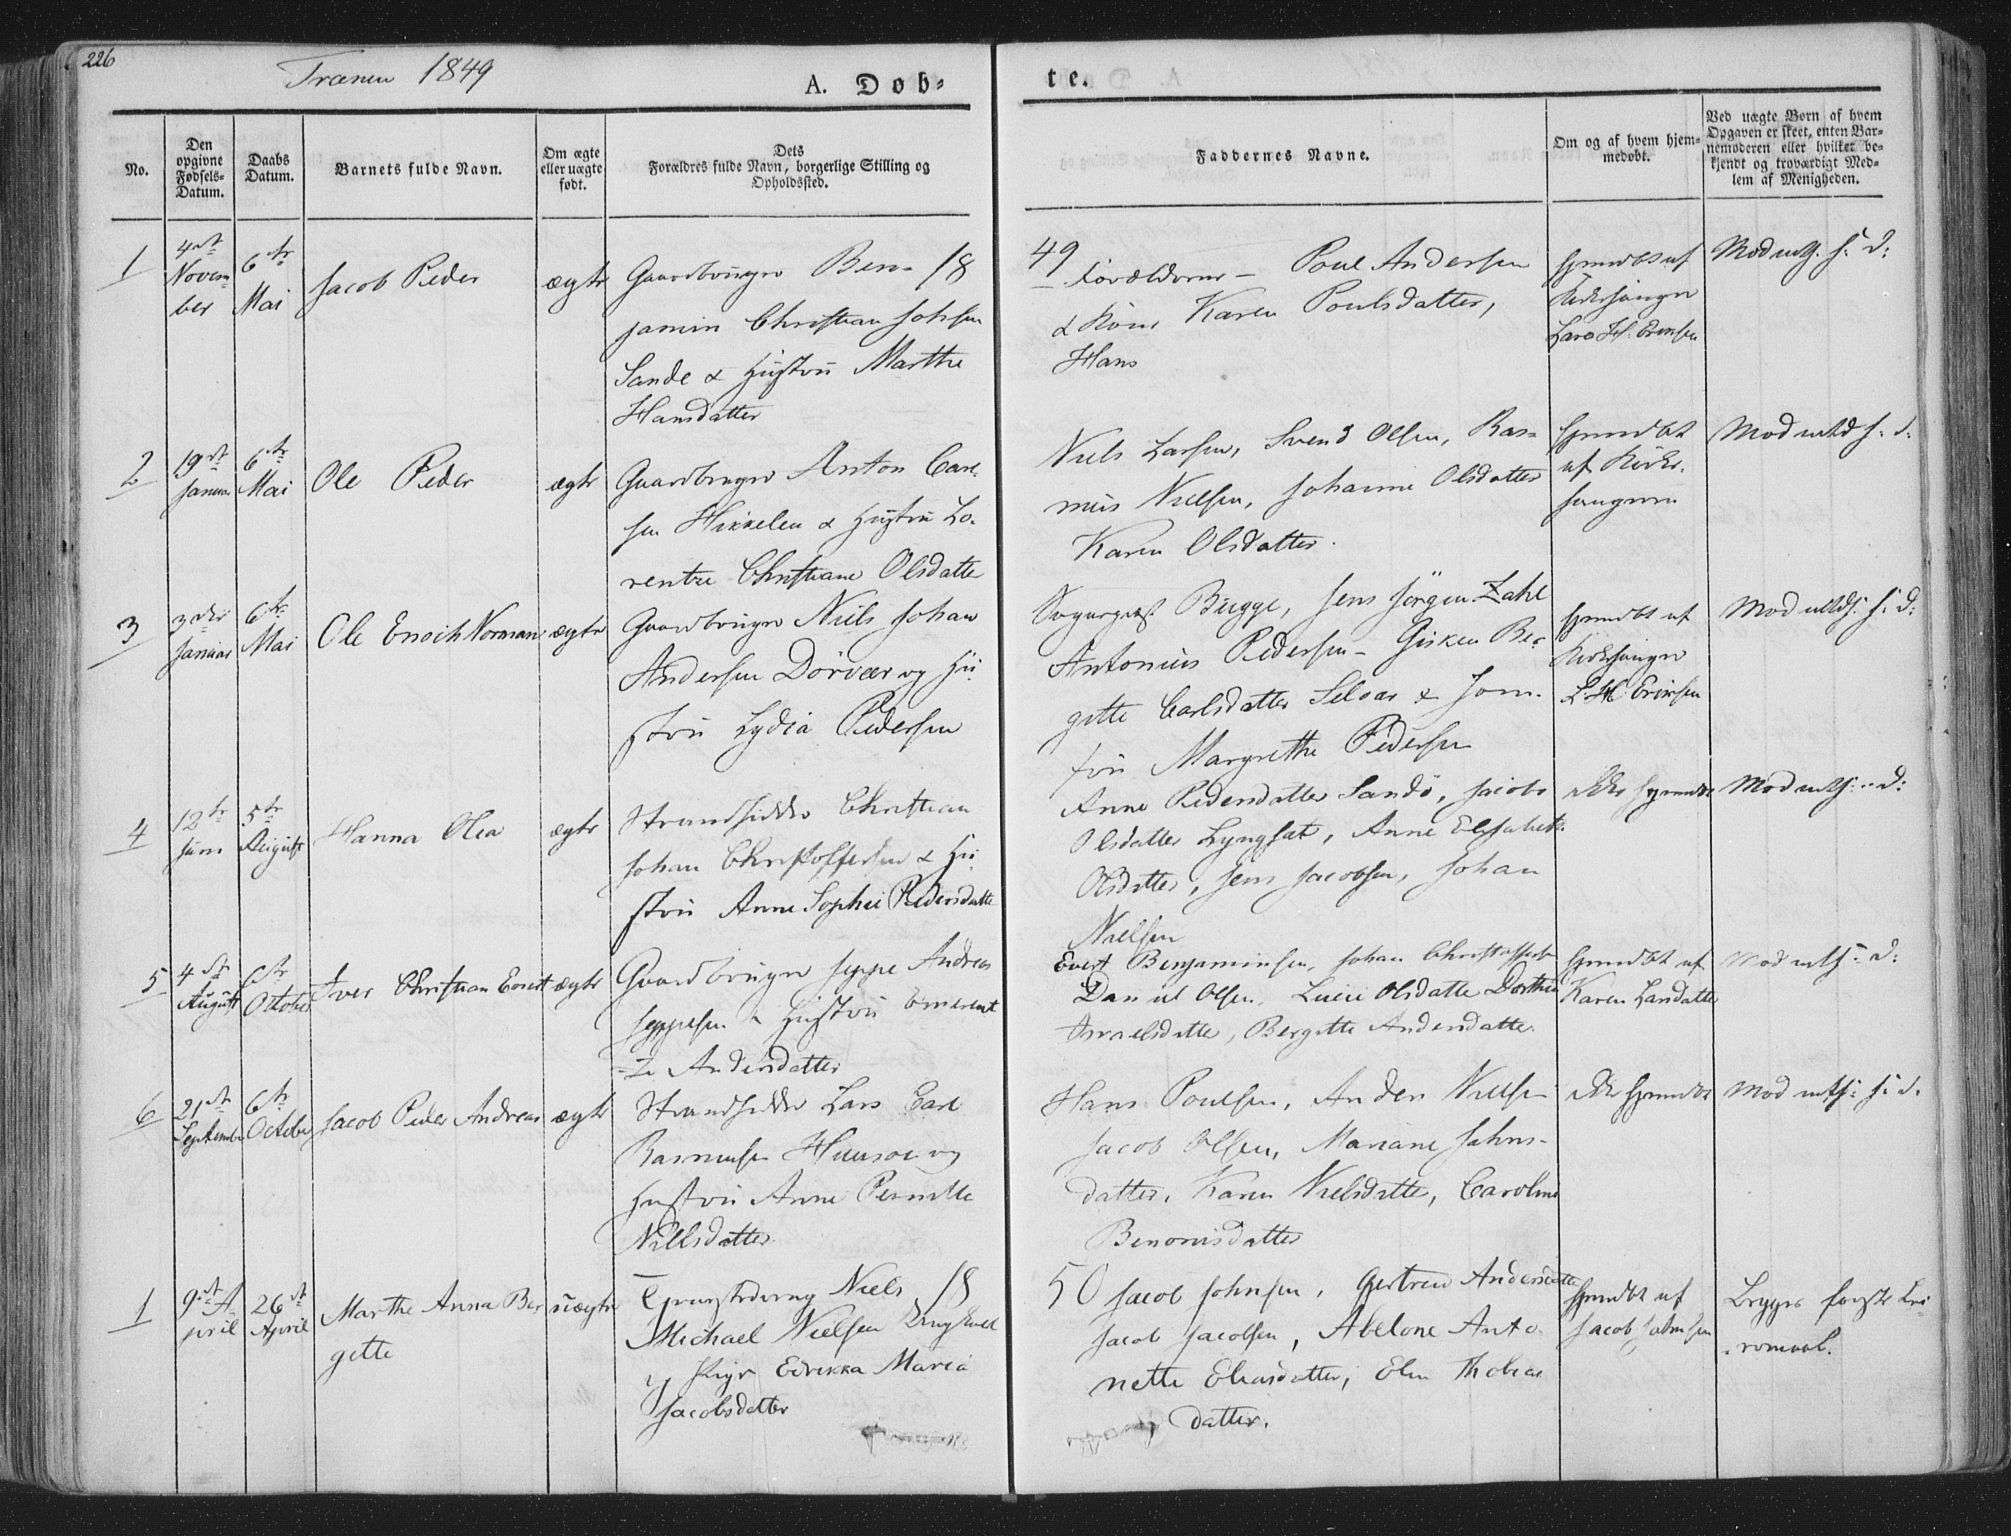 226
Trænen 1849
A. Døb-
te.
No.
Den opgivne Fødsels-Datum.
Daabs Datum.
Barnets fulde Navn.
Om ægte eller uægte født.
Dets
Forældres fulde Navn, borgerlige Stilling og
Opholdssted.
Faddernes Navne.
Om og af hvem hjem-
medøbt.
Ved uægte Børn af hvem
Opgaven er skeet, enten Bar-
nemoderen eller hvilket be-
kjendt og troværdigt Med-
lem af Menigheden.
18
49
1
4de
Novem
ber
6te
Mai
Jacob Peder
ægte
Gaardbruger Ben-
jamin Christian Johsen
Sande & Hustru Marthe
Hansdatter
Forældrene - Poul Andersen
& Kone Karen Poulsdatter,
Hans
hjemdøbt af
Kirkesanger
Lars H. Eriksen
2
19de
Januar
6te
Mai
Ole Peder
ægte
Gaardbruger Anton Carl-
sen Hikkelen & Hustru Lo-
rentze Christiane Olsdatter
Niels Larsen, Svend Olsen, Ras-
mus Nielsen, Johanne Olsdatter
Karen Olsdatter.
hjemdøbt
af Kirke-
sangeren
3
3die
Januar
6te
Mai
Ole Enoch Norman
ægte
Gaardbruger Niels Johan
Andersen Dörvær og Hu-
stru Lydia Pedersen
Sogneprest Bugge, Jens Jörgen Zahl
Antonius Pedersen - Gisken Ber-
gitte Carlsdatter Selvær & Jom-
fru Margrethe Pedersen
hjemdøbt af
Kirkesanger
L. H. Eriksen
4
12te
Juni
5te
August
Hanna Olea
ægte
Strandsidder Christian
Johan Christoffersen & Hu-
stru Anne Sophie Pedersdatter
Anne Pedersdatter Sandö, Jacob
Olsdatter Lyngsat, Anne Elisabeth
Olsdatter, Jens Jacobsen, Johan
Nielsen
ikke hjemdøbt
5
4de
August
6te
October
Iver Christian Evert
ægte
Gaardbruger Jeppe Andreas
Jeppesen & Hustru Emerent-
ze Andersdatter
Evert Benjaminsen, Johan Christoffersen
Daniel Olsen, Lucie Olsdatter Dorthea
Israelsdatter, Bergitte Andersdatter.
hjemdøbt af
Karen Larsdatter
6
21de
September
6te
October
Jacob Peder Andreas
ægte
Strandsidder Lars Carl
Rasmusen Husøe og
Hustru Anne Pernille
Nielsdatter
Hans Poulsen, Anders Nielsen
Jacob Olsen, Mariane Johns-
datter, Karen Nielsdatter, Caroline
Benonisdatter
ikke hjemdøbt
18
50
1
9de A-
pril
26de
April
Marthe Anna Ber
gitte
uægte
Niels
Michael Nielsen
Pige Edrikka Maria
Jacobsdatter
Jacob Johnsen, Gertrud Andersdatter
Jacob Jacobsen, Abelone Anto-
nette Eliasdatter, Elen Thobias
datter.
hjemdøbt af
Jacob Johnsen
Begges første Lei
ermaal.